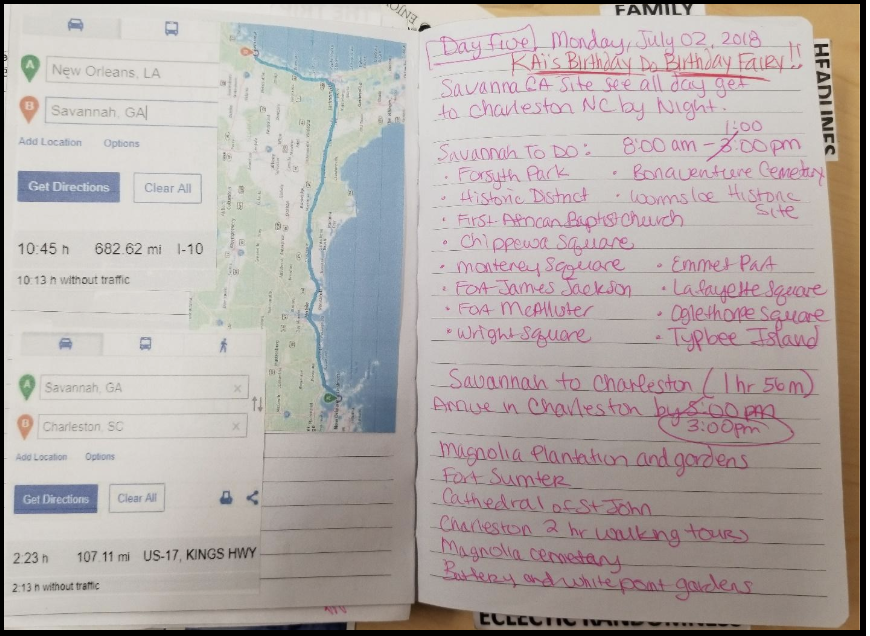 New Orleans, LA
Savannah, GA
Add Location Options
Get Directions Clear All
10:45 h 682.62 mi I-10
10:13 h without traffic
A Savannah, GA ×
B Charleston, SC ×
Add Location Options
Get Directions Clear All
2.23 h 107.11 mi US-17, KINGS HWY
2:13 h without traffic
FAMILY
HEADLINES
Day five Monday, July 02, 2018
KAi's Birthday Do Birthday Fairy!!
Savanna GA Site see all day get
to Charleston NC by Night.
1:00
Savannah To Do: 8:00 am - 3:00 pm
• Forsyth Park • Bonaventure Cemetery
• Historic District • Wormsloe Historic
Site
• First African Baptist Church
• Chippewa Square
• Monterey Square • Emmet Park
• Fort James Jackson • Lafayette Square
• Fort McAllister • Oglethorpe Square
• Wright Square • Typbee Island
Savannah to Charleston (1 hr 56 m)
Arrive in Charleston by 5:00 pm
3:00pm
Magnolia Plantation and gardens
Fort Sumter
Cathedral of St John
Charleston 2 hr walking tours
Magnolia cemetary
Battery and white point gardens
ECLECTIC RANDOMNESS